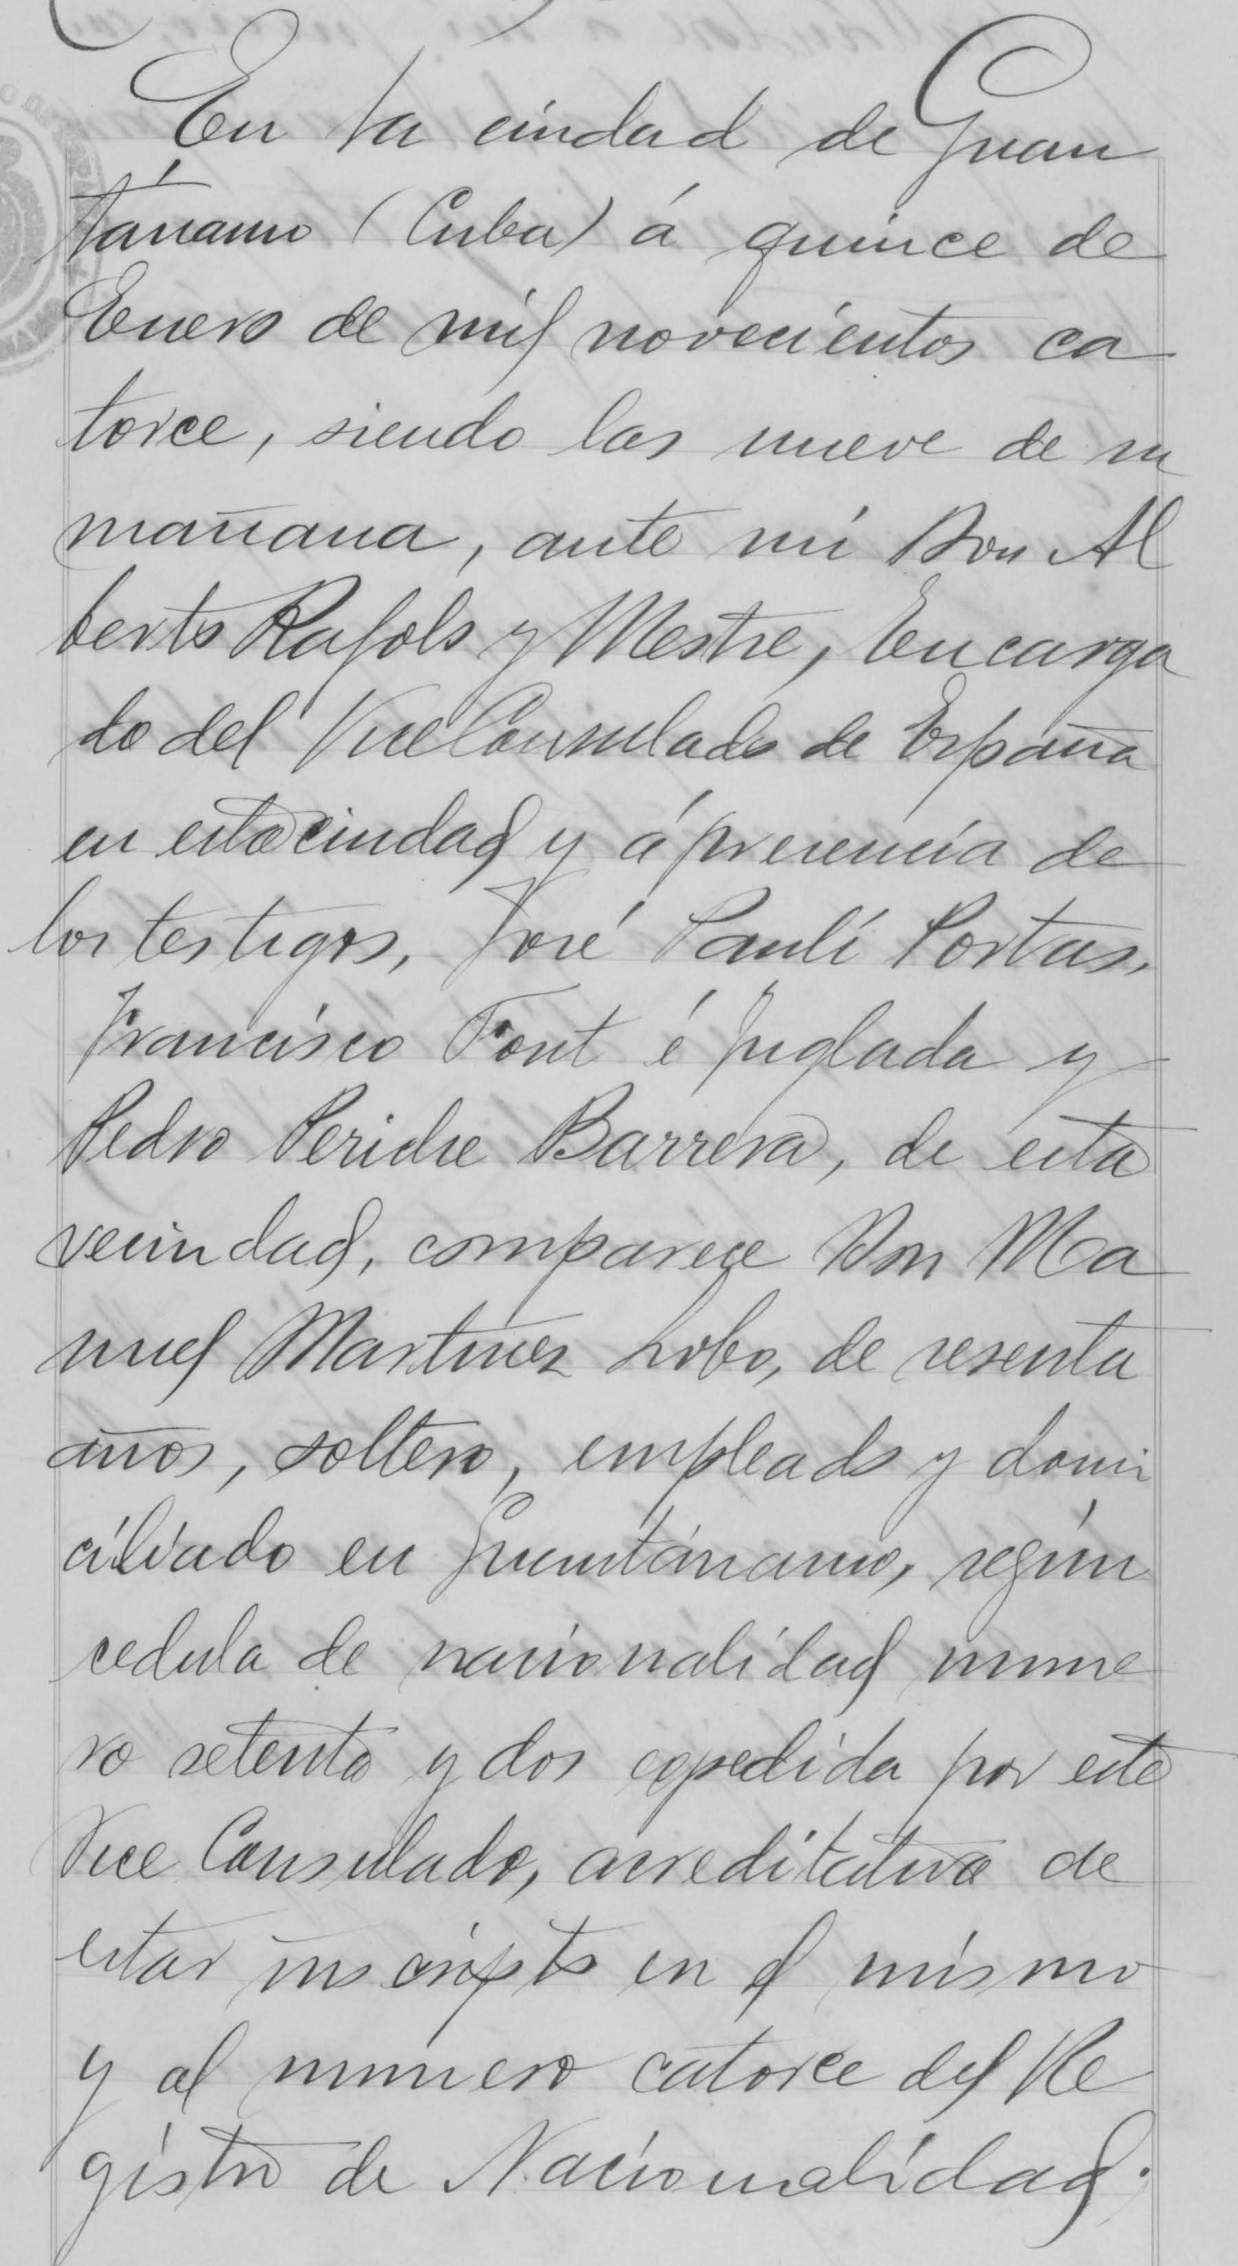 En la ciudad de Guan
tánamo (Cuba) á quince de
Enero de mil novecientos ca
torce, siendo las nueve de su
mañana, ante mi Don Al
berto Rafols y Mestre, Encarga
do del Vice Consulado de España
en esta ciudad y á presencia de
los testigos, José Paulí Portas,
Francisco Font é Inglada y
Pedro Barrera, de esta
vecindad, comparece Don Ma
nuel Martinez Lobo, de sesenta
años, soltero, empleado y domi
ciliado en Guantánamo, según
cedula de nacionalidad nume
ro setenta y dos expedida por este
Vice Consulado, acreditativa de
estar inscripto en el mismo
y al numero catorce del Re
gistro de Nacionalidad.